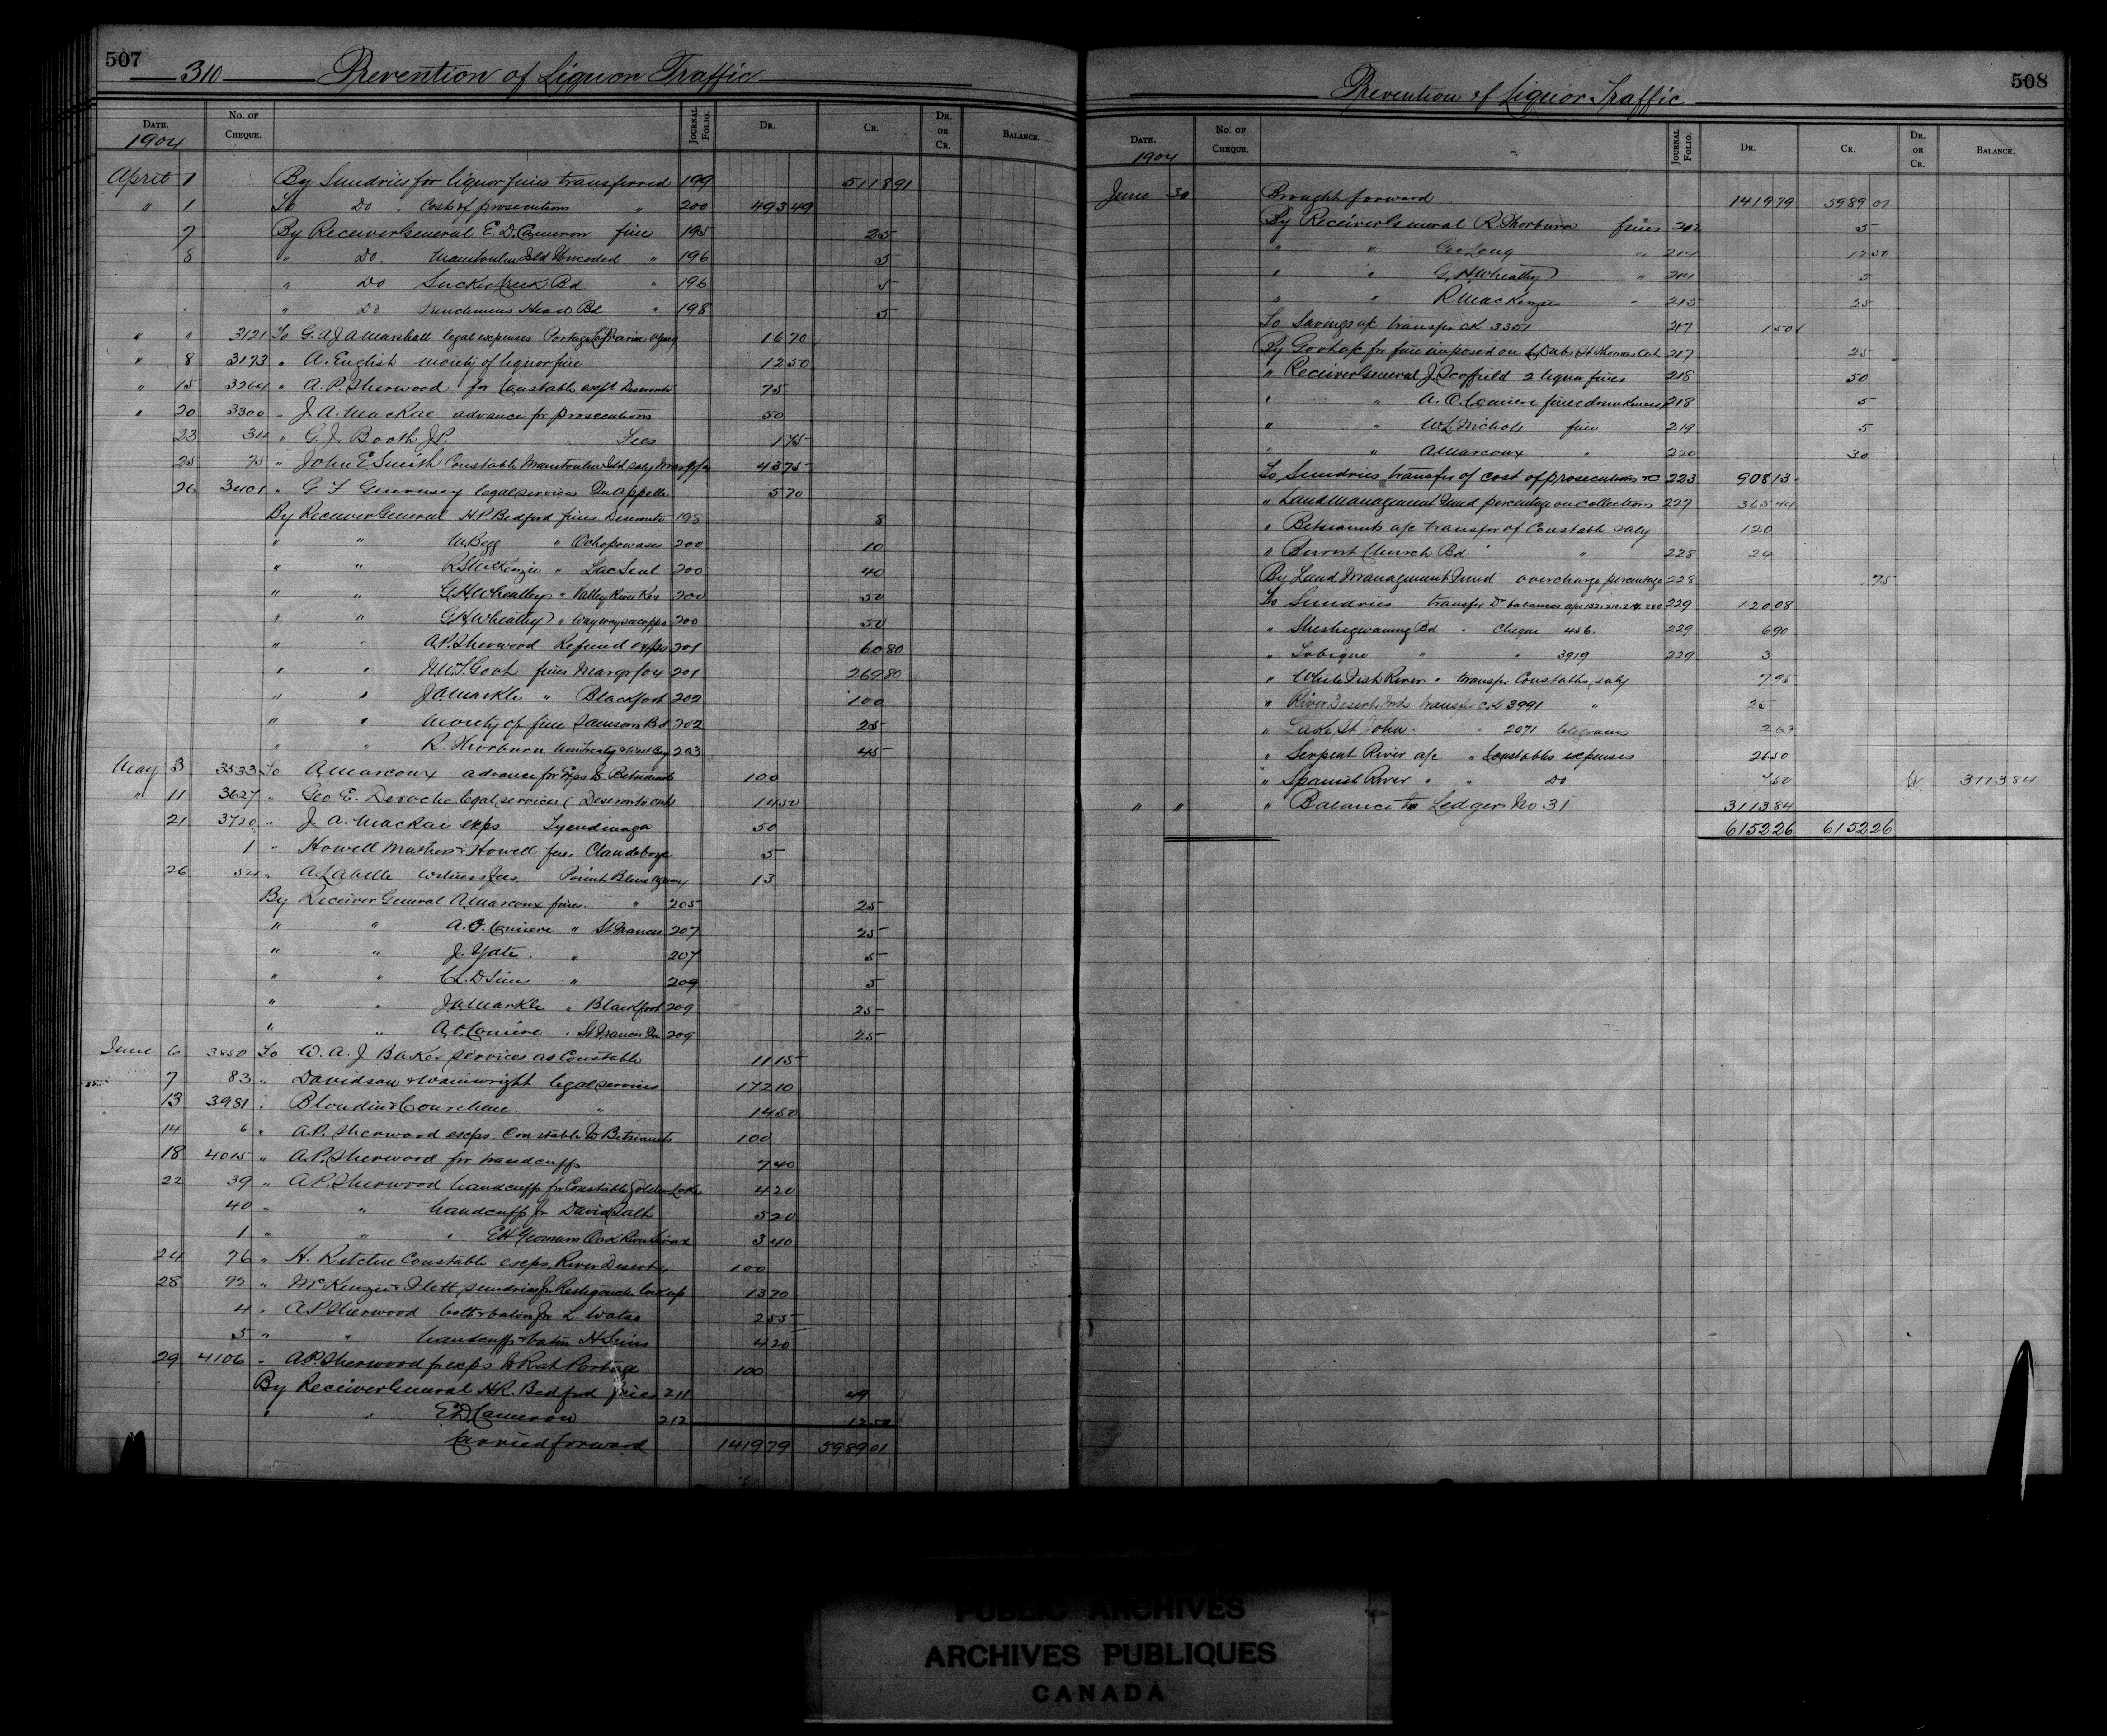 507
310 Prevention of Liquor Traffic
DATE. No. OF CHEQUE. JOURNAL FOLIO. DR. CR. DR. OR CR. BALANCE.
1904
April 1 By Sundries for liquor fines transferred 199 5118 91
" 1 To Do Cost of prosecutions " 200 493 49
7 By Receiver General E. D. Cameron fine 195 25
8 " Do. Manitoulin Isld Unceded " 196 5
" Do Sucker Creek Bd " 196 5
" Do Frenchmans Head Bd " 198 5
" " 3121 To G. A. J. A. Marshall legal expenses Portage la Prairie Agency 16 70
" 8 3173 " A. English moiety of liquor fine 12 50
" 15 3264 " A. P. Sherwood for Constable Deseronto 75
" 20 3300 " J. A. MacRae advance for prosecutions 50
23 311 " G. J. Booth J.P. " Fees 1 75
25 75 " John E. Smith Constable Manitoulin Isld saly 43 75
26 3401 " G. T. Guernsey legal services Qu'Appelle 5 70
By Receiver General H. P. Bedford fines Deseronto 198 8
" " M. Begg " Ochopowases 200 10
" " R. S. McKenzie " Lac Seul 200 40
" " G. H. Wheatley " Valley River Res 200 50
" " G. H. Wheatley " Waywayseecappo 200 50
" " A. P. Sherwood Refund exps 201 60 80
" " N.W.T. Govt fines 201 269 80
" " J. A. Markle " Blackfoot 202 100
" " Moiety of fine Samsons Bd 202 25
" " R. Thorburn 203 45
May 3 3533 To A. Marcoux advance for Exps to Betsiamits 100
" 11 3627 " Geo E. Deroche legal services (Deseronto 14 50
21 3720 " J. A. MacRae exps Tyendinaga 50
1 " Howell Mathers & Howell fees. Clandeboye 5
26 54 " A. Labelle witness fees. Point Bleue Agency 13
By Receiver General A. Marcoux fines. " 205 25
" " A. O. Comiere " St Francis 207 25
" " J. Yates. " 207 5
" " C. L. D. Sims " 209 5
" " J. A. Markle " Blackfoot 209 25
" " A. O. Comiere " St Francis 209 25
June 6 3850 To W. A. J. Baker services as Constable 11 15
7 83 " Davidson & Wainwright legal services 172 10
13 3981 " Blondin & Courchene " 14 50
14 6 " A. P. Sherwood exps. Constable to Betsiamits 100
18 4015 " A. P. Sherwood for handcuffs 7 40
22 39 " A. P. Sherwood handcuffs for Constable Golden Lake 4 20
40 " " handcuffs for David Salt 5 20
1 " " " E. H. Yeomans 3 40
24 76 " H. Ritchie Constable exps. River Desert 100
28 92 " McKenzie & Flett sundries for Restigouche lockup 13 70
4 " A. P. Sherwood belt & baton for L. Watso 2 55
5 " " handcuffs & baton H. Sims 4 20
29 4106 " A. P. Sherwood for exps to Rat Portage 100
By Receiver General H. R. Bedford fines 211 49
" " E. D. Cameron 212 12 50
Carried forward 1419 79 5989 01
508
Prevention of Liquor Traffic
DATE. No. OF CHEQUE. JOURNAL FOLIO. DR. CR. DR. OR CR. BALANCE.
1904
June 30 Brought forward 1419 79 5989 01
By Receiver General R. Thorburn fines 212 5
" " Geo Long " 214 12 50
" " G. H. Wheatley " 214 5
" " R. S. MacKenzie " 215 25
To Savings a/c transfer ck 3351 217 1 50
By Govt a/c for fine imposed on 217 25
" Receiver General J. Scoffield 2 liquor fines 218 50
" " A. O. Comiere fine (drunkenness) 218 5
" " W. L. Nichols fine 219 5
" " A. Marcoux " 220 30
To Sundries transfer of cost of prosecutions 223 908 13
" Land Management Fund percentage on collections 227 365 44
" Betsiamits a/c transfer of Constable saly 120
" Burnt Church Bd " " 228 24
By Land Management Fund overcharge percentage 228 75
To Sundries transfer Dr balances 229 120 08
" Sheshegwaning Bd " Cheque 456. 229 6 90
" Tobique " " 3919 229 3
" White Fish River " transfer Constables saly 7 95
" River Desert Ind transfer ck 3991 " 25
" Lake St John " " 2071 telegrams 2 63
" Serpent River a/c " Constables expenses 26 50
" Spanish River " " Do 7 50 Cr 3113 84
" " " Balance to Ledger No 31 3113 84
6152 26 6152 26
PUBLIC ARCHIVES
ARCHIVES PUBLIQUES
CANADA